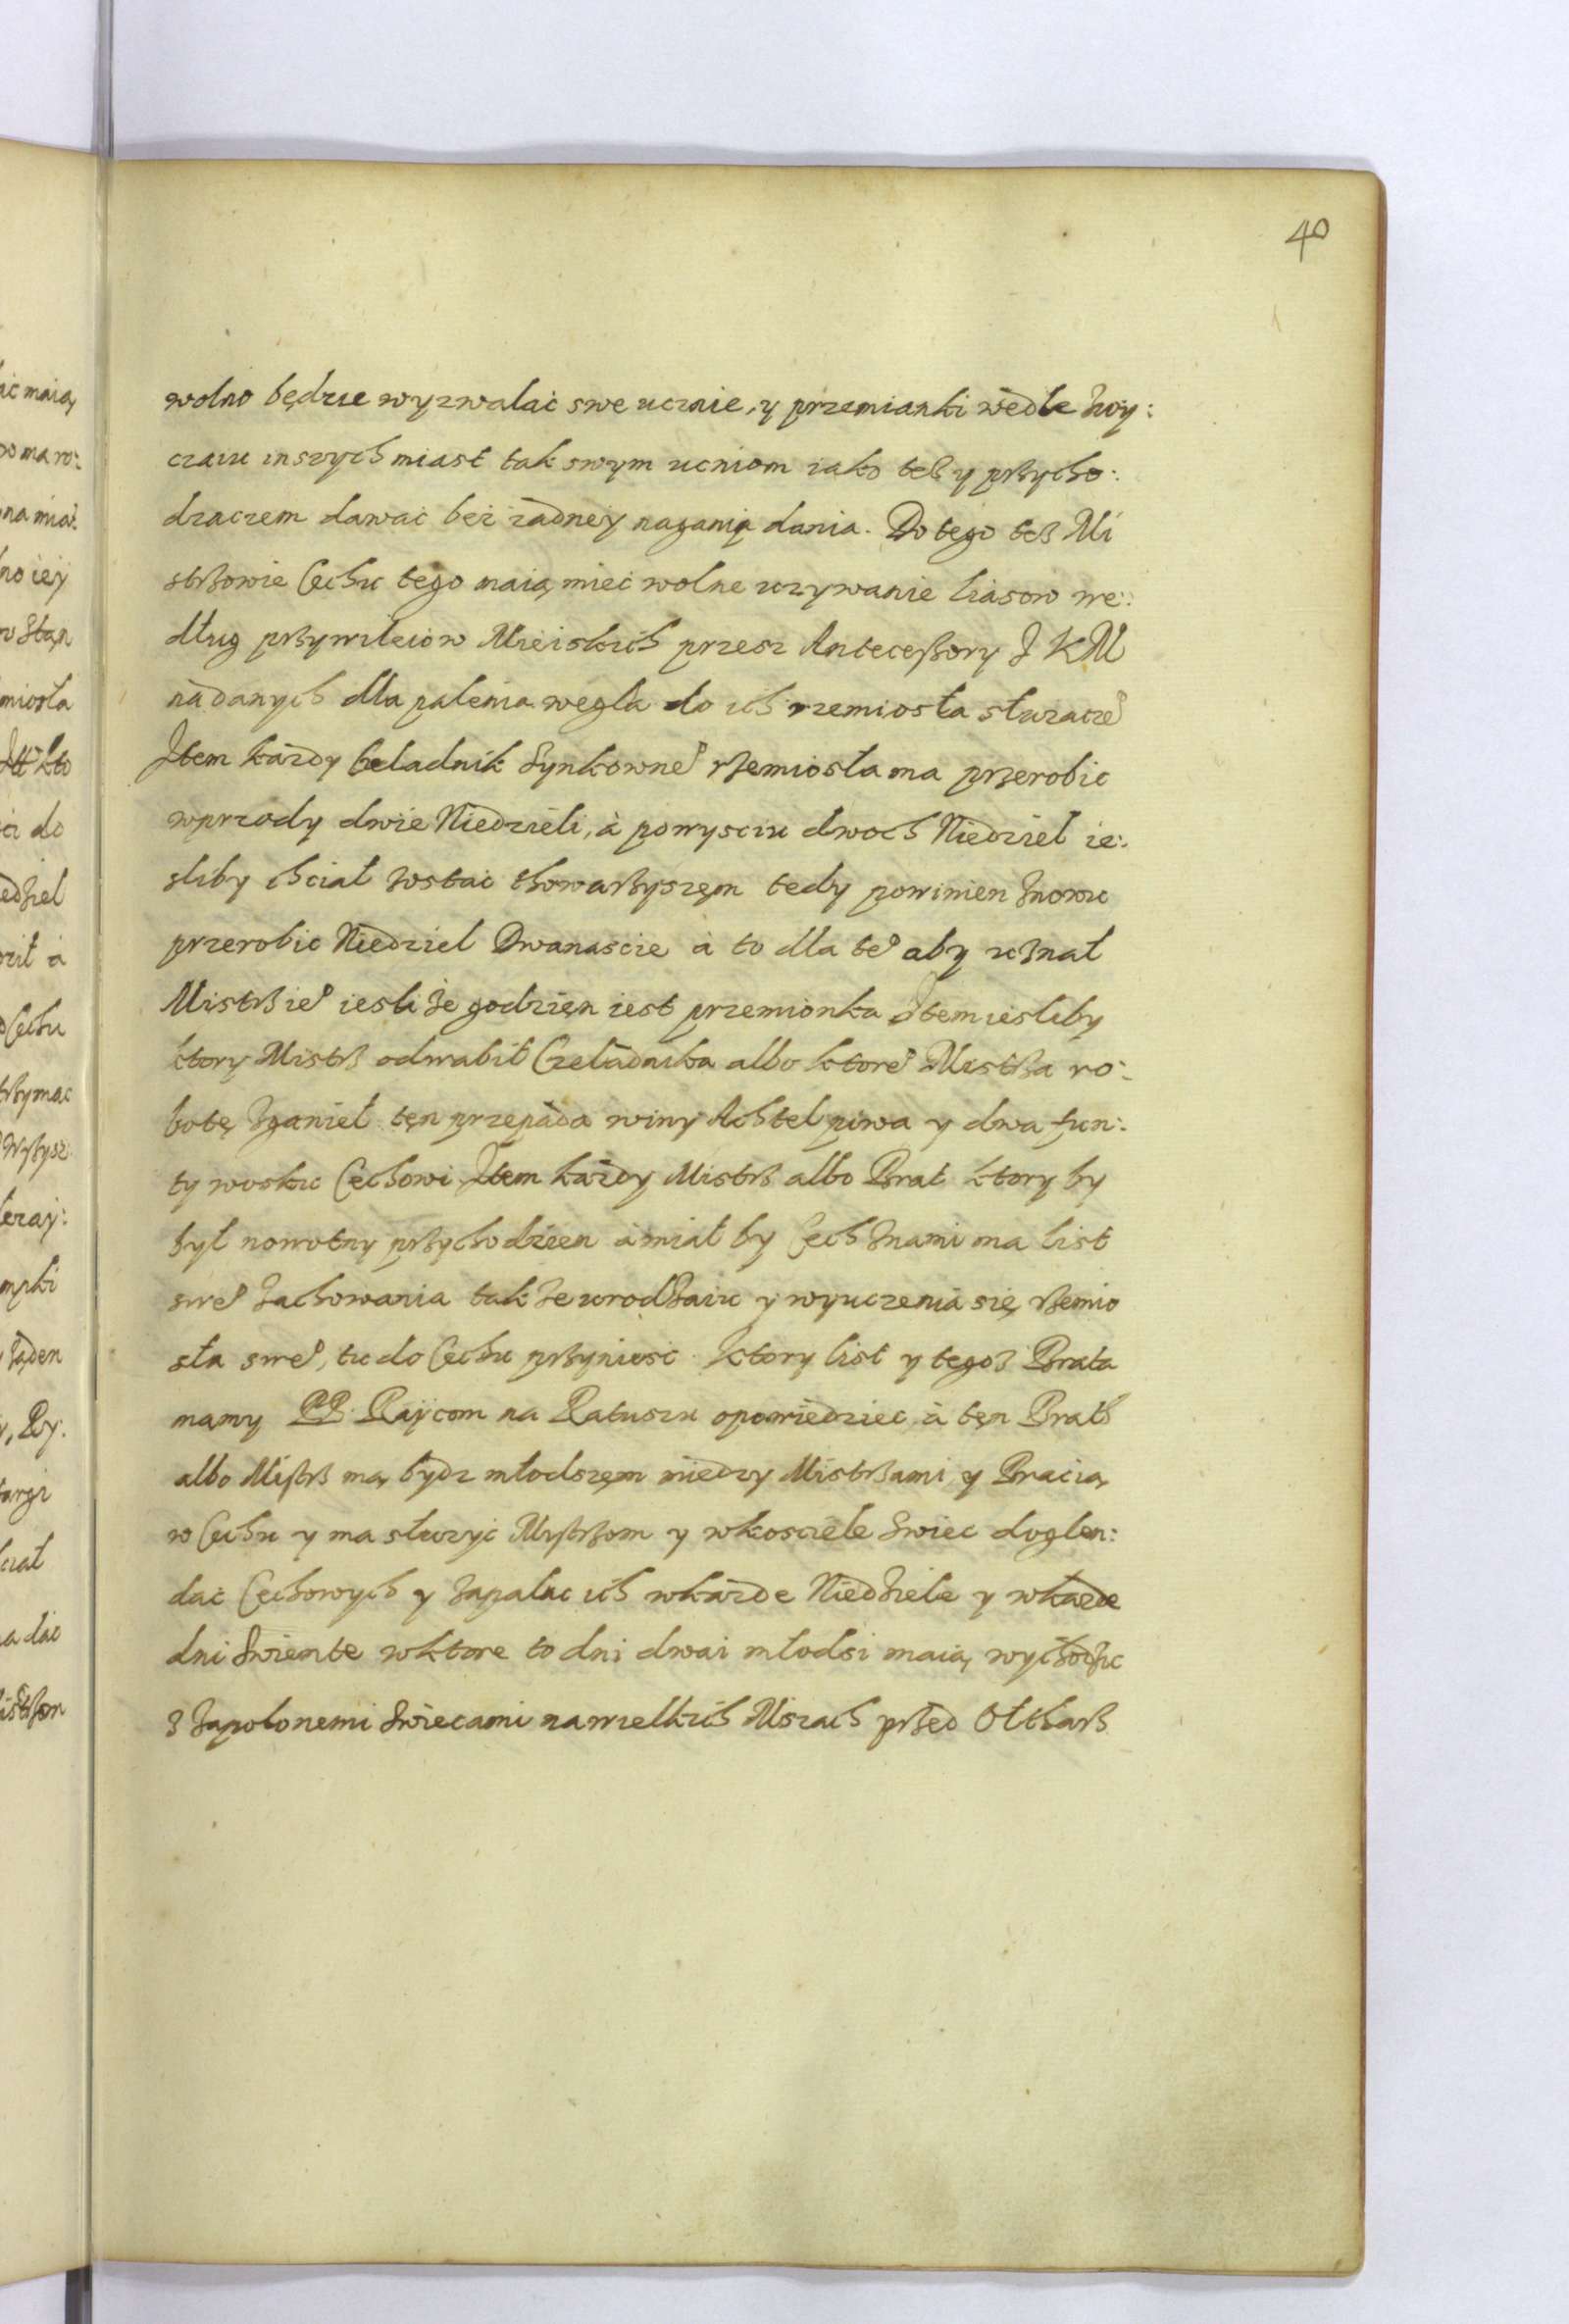 40
wolno będzie wyzwalać swe ucznie, y przemianki wedle zwy:
czaiu inszych miast tak swym ucniom iako tesz y przycho:
dzaczem dawać bez żadney nagany dania. Do tego tesz Mi
strzowie Cechu tego maią mieć wolne uzywanie liasow we:
dług przywileiow Mieiskich przesz Antecessory J K M
nadanych dla palenia węgla do ich rzemiosła słuzące°
Item kazdy Celadnik Synkowne° rzemiosła ma przerobic
wprzody dwie Niedzieli, à powysciu dwoch Niedziel ie:
sliby chciał zostać thowarzyszęm tedy powinien znowu
przerobic Niedziel Dwanascie à to dla te° aby uznał
Mistrz ie° iesli że godzien iest przemionka Item iesliby
ktory Mistrz odwabił Czeladnika albo ktore° Mistrza ro:
botę zganieł tęn przepada winy Achtel piwa y dwa fun:
ty wosku Cechowi Item każdy Mistrz albo Brat ktory by
był nowotny przychodzien à miał by Cech znami ma list
swe° zachowania także urodzaiu y wyuczenia się rzemio
sła swe°, tu do Cechu przyniesc ktory list y tegosz Brata
mamy PP. Rajcom na Ratuszu opowiedziec à tęn Brat
albo Mistrz ma bydz młodszęm miedzy Mistrzami y Bracią
w Cechu y ma słuzyc Mystrzom y wkosciele Swiec doglen:
dać Cechowych y zapalac ich wkażde Niedziele y wkazde
dni Swiente wktore to dni dwai młodsi maią wychodzic
z zapolonemi Swiecami nawielkich Mszach przed Ołtharz